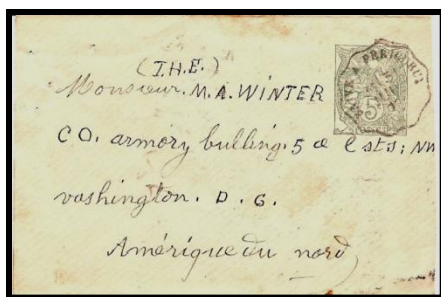 (I.H.E.)
Monsieur. M.A. WINTER
CO. armory bulling. 5 œ E sts; NW
washington. D. G.
Amérique du nord
5